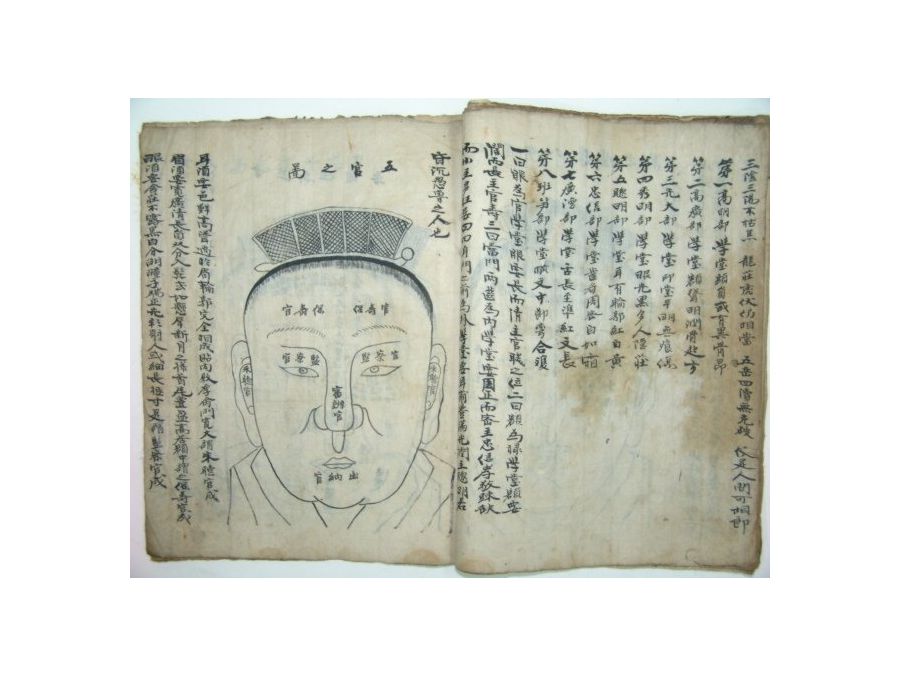 三陰三陽不枯焦 龍莊虎伏仍相當 五岳四瀆無克破 是人間可相郎
第一高明部學堂頭角或有異骨昂
第二高廣部學堂額明潤骨起方
第三光大部學堂印堂平明痕傷
第四秀明部學堂眼光黑多人隱
第五聰明部學堂耳有輪郭紅白黃
第六忠信部學堂齒齊周密白如霜
第七廣德部學堂舌長至準紅文長
第八班笋部學堂橫文中節彎合雙
一曰眼為官學堂眼要長而清主官職之位二曰額為祿學堂額要
濶而長主官壽三曰當門兩齒為內學堂要周正而密主忠信孝敬疎缺
而小主多狂妄四曰耳門之前為外學堂要耳前豊滿光潤主聰明若
昏沉愚魯之人也
五官之啚
官壽保 保壽官
官察監 監察官
采聽官
采聽官
審辨官
出納官
耳須要色鮮高聳過於眉輪郭完全相成貼肉敦厚命門寬大謂采聽官成
眉須要寬廣清長雙分入鬂或如懸犀新月之樣首尾豊盈高居額中謂之保壽官成
眼須要含莊不露黑白分明瞳子端正光彩射人或細長極寸是謂監察官成